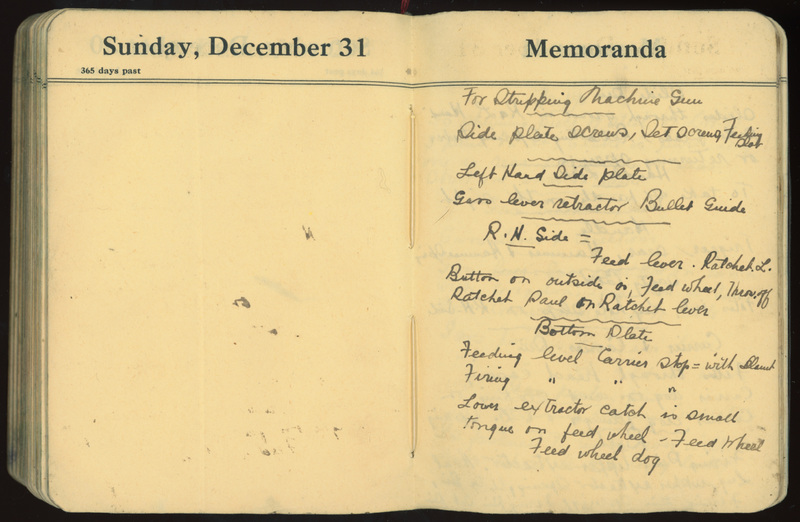 Sunday, December 31
365 days past
Memoranda
For Stripping Machine Gun
Side plate screws, Set screws, Feeding
Slot
Left Hand Side plate
Guss lever retractor Bullet Guide
R.H. Side =
Feed lever. Ratchet. L.
Button on outside is, Feed wheel, Throw off
Ratchet Paul on Ratchet lever
Bottom Plate
Feeding level Carrier stop = with Slant
Firing " " "
Lower extractor catch is small
tongue on feed wheel - Feed Wheel
Feed wheel dog